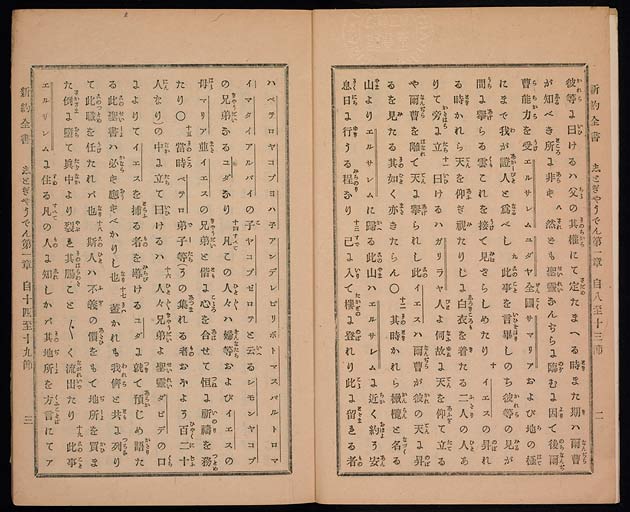 新約全書 志とぎやうでん第一章 自八至十三節 二
彼等に曰けるハ父の其權にて定たまへる時また期ハ爾曹
が知べき所に非ず 八 然ども聖靈なんぢらに臨むに因て後爾
曹能力を受エルサレムユダヤ全國サマリアおよび地の極
にまで我が證人と爲べし 九 此事を言畢しのち彼等の見が
間に擧らる雲これを接て見ざらしめたり 十 イエスの昇れ
る時かれら天を仰ぎ視たりしに白衣を着たる二人の人あ
りて旁に立 十一 曰けるハガリラヤ人よ何故に天を仰て立る
や爾曹を離て天に擧られし此イエスハ爾曹が彼の天に昇
るを見たる其如く亦きたらん〇十二 其時かれら橄欖と名る
山よりエルサレムに歸る此山ハエルサレムに近く約そ安
息日に行うる程なり 十三 已に入て樓に登れり此に留まる者
ハペテロヤコブヨハ子アンデレピリポトマスバルトロマ
イマタイアルパイの子ヤコブゼロテと云るシモンヤコブ
の兄弟なるユダなり 十四 凡てこの人々ハ婦等およびイエスの
母マリア並イエスの兄弟と偕に心を合せて恒に祈禱を務
たり〇十五 當時ペテロ弟子等の集れる者おほよそ百二十
人なりの中に立て曰けるハ 十六 人々兄弟よ聖靈ダビデの口
によりてイエスを捕る者を導けるユダに就て預じめ語た
る此聖書ハ必ず應べかりし也 十七 蓋かれも我儕と共に列り
て此職を任たれバ也 十八 斯人ハ不義の價をもて地所を買ま
た倒に墮て眞中より裂其腸こと〲く流出たり 十九 此事
エルサレムに住る凡の人に知しかバ其地所を方言にてア
新約全書 志とぎやうでん第一章 自十四至十九節 三